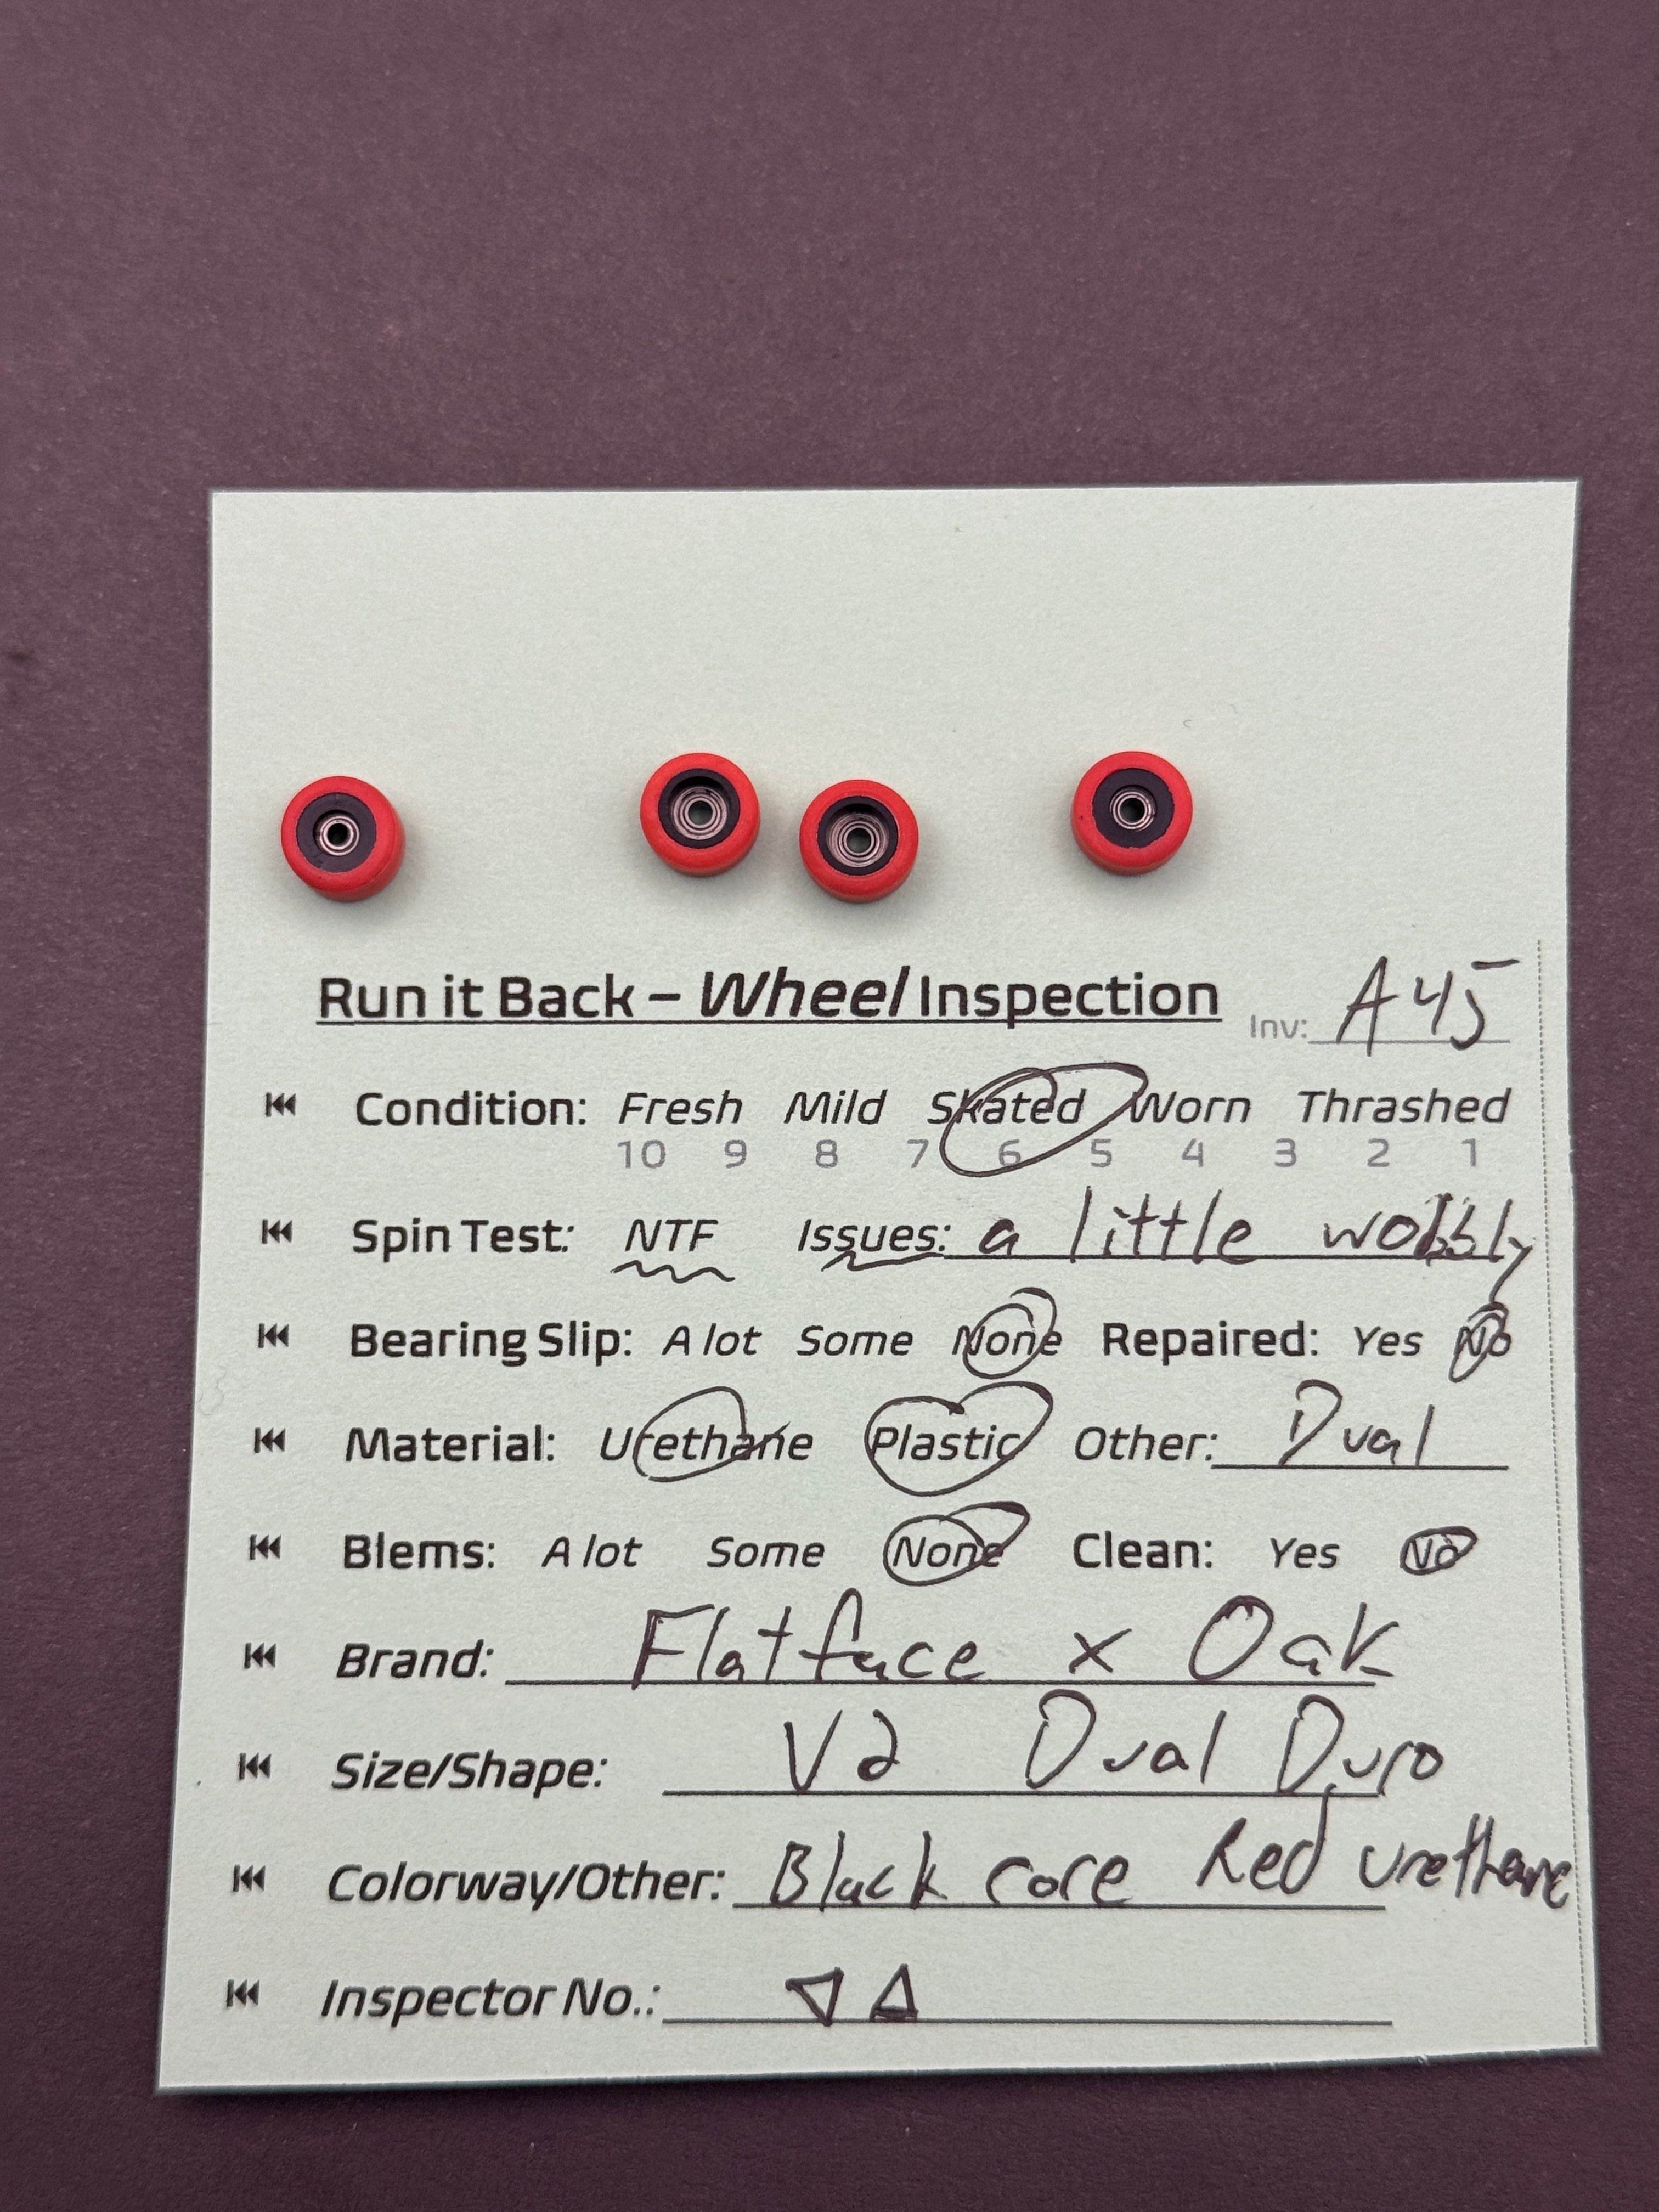 Run it Back – Wheel Inspection Inv: A45
Condition: Fresh Mild Skated Worn Thrashed
10 9 8 7 6 5 4 3 2 1
Spin Test: NTF Issues: a little wobbly
Bearing Slip: A lot Some None Repaired: Yes No
Material: Urethane Plastic Other: Dual
Blems: A lot Some None Clean: Yes No
Brand: Flatface x Oak
Size/Shape: V2 Dual Duro
Colorway/Other: Black core Red urethane
Inspector No.: